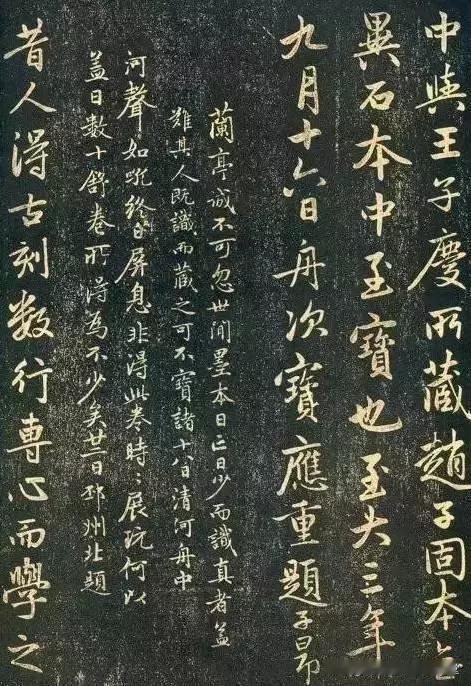 中與王子慶所藏趙子固本无
異石本中至寶也至大三年
九月十六日舟次寶應重題子昂
蘭亭誠不可忽世間墨本日亡日少而識真者蓋
難其人既識而藏之可不寶諸十八日清河舟中
河聲如吼終日屏息非得此卷時〻展玩何以
盖日數十舒卷所得為不少矣廿二日邳州北題
昔人得古刻數行專心而學之